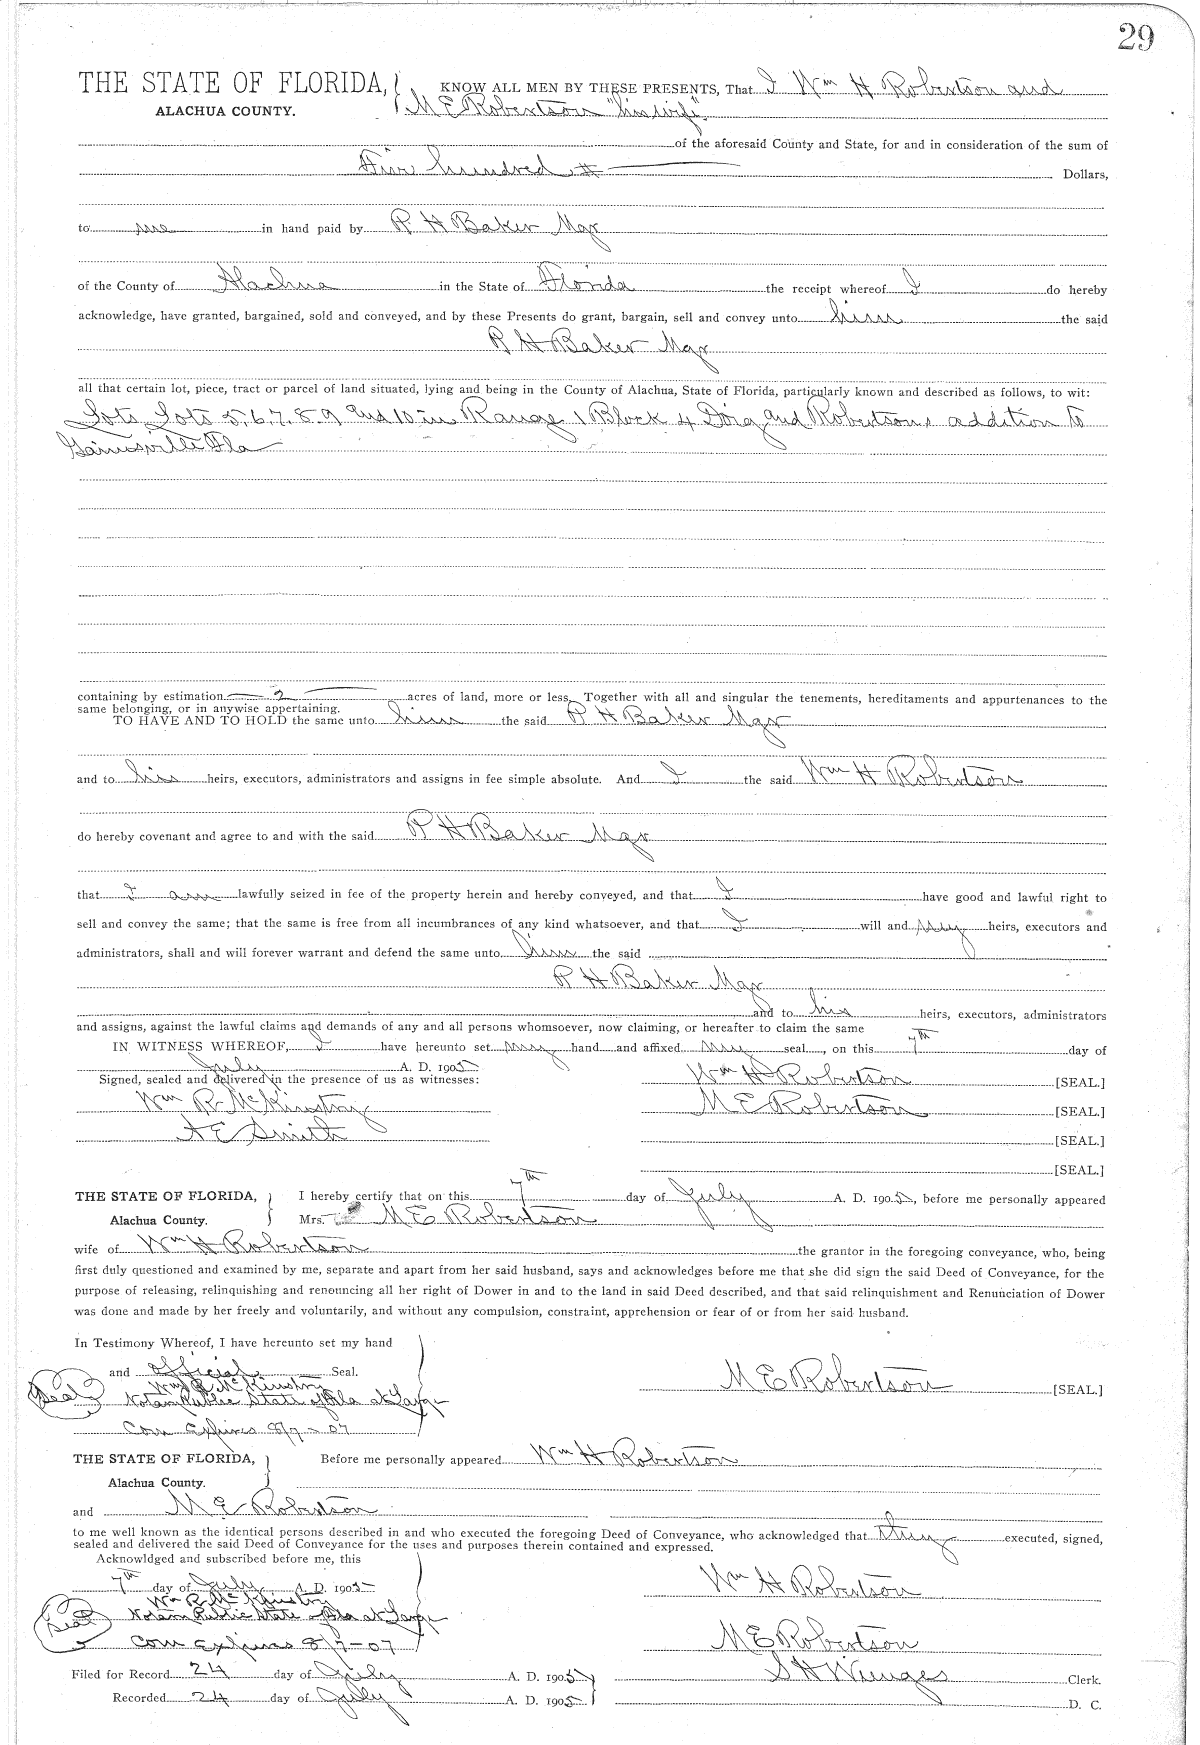 29
THE STATE OF FLORIDA, KNOW ALL MEN BY THESE PRESENTS, That I Wm H Robertson and
ALACHUA COUNTY. M E Robertson "his wife".
of the aforesaid County and State, for and in consideration of the sum of
Five hundred Dollars,
to me in hand paid by P. H Baker Mgr
of the County of Alachua in the State of Florida the receipt whereof I do hereby
acknowledge, have granted, bargained, sold and conveyed, and by these Presents do grant, bargain, sell and convey unto him the said
P H Baker Mgr
all that certain lot, piece, tract or parcel of land situated, lying and being in the County of Alachua, State of Florida, particularly known and described as follows, to wit:
Lots Lots 5, 6, 7, 8, 9 and 10 in Range 1 Block 4 Doig and Robertsons addition to
Gainesville Fla
containing by estimation 2 acres of land, more or less. Together with all and singular the tenements, hereditaments and appurtenances to the
same belonging, or in anywise appertaining.
TO HAVE AND TO HOLD the same unto him the said P H Baker Mgr
and to his heirs, executors, administrators and assigns in fee simple absolute. And I the said Wm H Robertson
do hereby covenant and agree to and with the said P H Baker Mgr
that I am lawfully seized in fee of the property herein and hereby conveyed, and that I have good and lawful right to
sell and convey the same; that the same is free from all incumbrances of any kind whatsoever, and that I will and my heirs, executors and
administrators, shall and will forever warrant and defend the same unto him the said
P H Baker Mgr
and to his heirs, executors, administrators
and assigns, against the lawful claims and demands of any and all persons whomsoever, now claiming, or hereafter to claim the same
IN WITNESS WHEREOF, I have hereunto set my hand and affixed my seal, on this 7th day of
July A. D. 1905
Signed, sealed and delivered in the presence of us as witnesses: Wm H Robertson [SEAL.]
Wm R McKinstry M E Robertson [SEAL.]
A E Smith [SEAL.]
[SEAL.]
THE STATE OF FLORIDA, I hereby certify that on this 7th day of July A. D. 1905, before me personally appeared
Alachua County. Mrs. M E Robertson
wife of Wm H Robertson the grantor in the foregoing conveyance, who, being
first duly questioned and examined by me, separate and apart from her said husband, says and acknowledges before me that she did sign the said Deed of Conveyance, for the
purpose of releasing, relinquishing and renouncing all her right of Dower in and to the land in said Deed described, and that said relinquishment and Renunciation of Dower
was done and made by her freely and voluntarily, and without any compulsion, constraint, apprehension or fear of or from her said husband.
In Testimony Whereof, I have hereunto set my hand
and official Seal. M E Robertson [SEAL.]
Seal Wm R McKinstry
Notary Public State of Fla at Large
Com Expires 8/7-07
THE STATE OF FLORIDA, Before me personally appeared Wm H Robertson
Alachua County.
and M E Robertson
to me well known as the identical persons described in and who executed the foregoing Deed of Conveyance, who acknowledged that they executed, signed,
sealed and delivered the said Deed of Conveyance for the uses and purposes therein contained and expressed.
Acknowldged and subscribed before me, this
7th day of July A. D. 1905 Wm H Robertson
Wm R McKinstry
Seal Notary Public State of Fla at Large
Com Expires 8/7-07 M E Robertson
Filed for Record 24 day of July A. D. 1905 S H Wienges Clerk.
Recorded 24 day of July A. D. 1905 D. C.